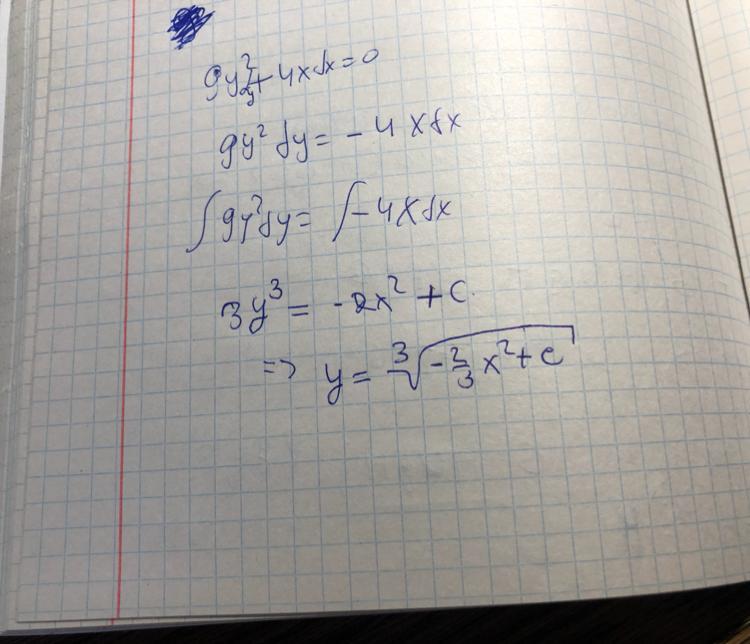 9y² dy + 4xdx = 0
9y² dy = - 4xdx
∫9y²dy = ∫-4xdx
3y³ = -2x² + C.
=> y = ³√(-2/3 x² + C)